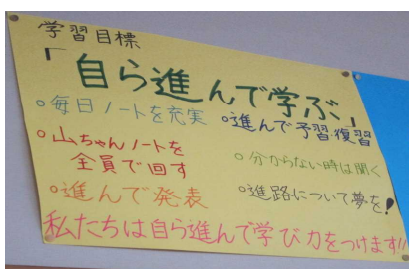 学習目標
「自ら進んで学ぶ」
○毎日ノートを充実
○進んで予習復習
○山ちゃんノートを
全員で回す
○分からない時は聞く
○進んで発表
○進路について夢を!
私たちは自ら進んで学び力をつけます!!